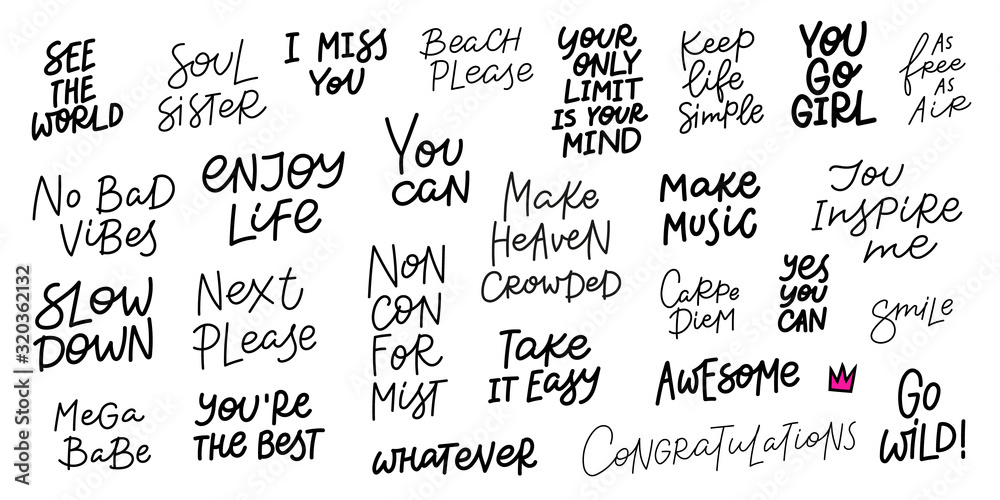 SEE
THE
WORLD
SOUL
SISTER
I MISS
YOU
BEACH
PLEASE
YOUR
ONLY
LIMIT
IS YOUR
MIND
Keep
life
simple
YOU
GO
GIRL
AS
free
AS
AIR
NO BAD
ViBES
ENJOY
LiFE
YOU
CAN
MAKE
HEAVEN
CROWDED
MAKE
MUSIC
YOU
INSPIRE
me
SLOW
DOWN
NEXT
PLEASE
NON
CON
FOR
MIST
CARPE
DIEM
yes
you
CAN
SMiLE
TAKE
IT EASY
AWESOME
MEGA
BABE
YOU'RE
THE BEST
WHATEVER
CONGRATULATIONS
GO
WiLD!
Adobe Stock | #320362132